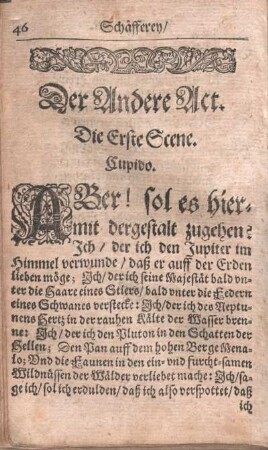 46 Schäfferey/
Der Andere Act.
Die Erste Scene.
Cupido.
ABer! sol es hier-
mit dergestalt zugehen?
Jch / der ich den Jupiter im
Himmel verwunde / daß er auff der Erden
lieben möge; Jch / der ich seine Majestät bald vn-
ter die Haare eines Stiers / bald vnter die Federn
eines Schwanes verstecke: Jch / der ich des Neptu-
nens Hertz in der rauhen Kälte der Wasser bren-
ne: Jch / der ich den Pluton in den Schatten der
Hellen; Den Pan auff dem hohen Berge Mena-
lo; Vnd die Faunen in den ein- vnd furcht-samen
Wildnüssen der Wälder verliebet mache: Jch / sa-
ge ich / sol ich erdulden / daß ich also verspottet / daß
ich